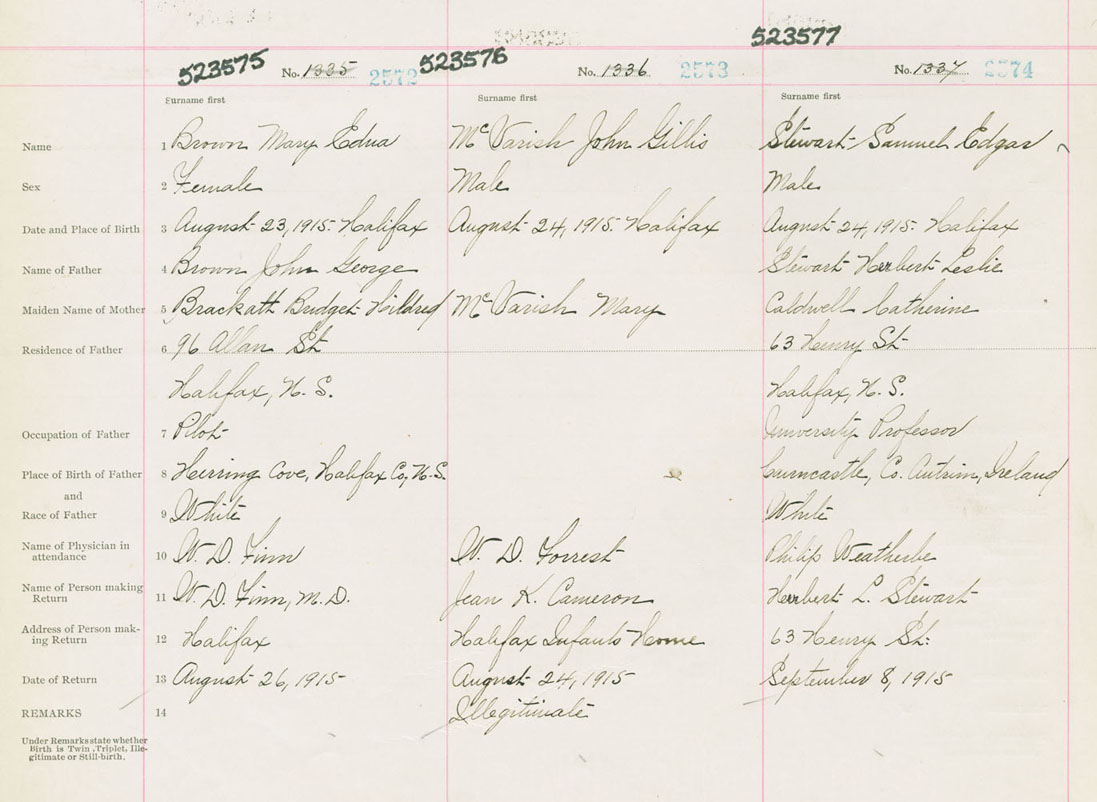 523575 523576 523577
No. 1335 2572 No. 1336 2573 No. 1337 2574
Surname first Surname first Surname first
Name 1 Brown Mary Edna McVarish John Gillis Stewart Samuel Edgar
Sex 2 Female Male Male
Date and Place of Birth 3 August 23, 1915. Halifax August 24, 1915. Halifax August 24, 1915. Halifax
Name of Father 4 Brown John George Stewart Herbert Leslie
Maiden Name of Mother 5 Brackett Bridget Hildred McVarish Mary Caldwell Catherine
Residence of Father 6 96 Allan St. 63 Henry St.
Halifax, N. S. Halifax, N. S.
Occupation of Father 7 Pilot University Professor
Place of Birth of Father 8 Herring Cove, Halifax Co, N.S. Co. Antrim, Ireland
and
Race of Father 9 White White
Name of Physician in
attendance 10 W. D. Finn W. D. Forrest Philip Weatherbe
Name of Person making
Return 11 W. D. Finn, M. D. Jean K. Cameron Herbert L. Stewart
Address of Person mak-
ing Return 12 Halifax Halifax Infants Home 63 Henry St.
Date of Return 13 August 26, 1915 August 24, 1915 September 8, 1915
REMARKS 14 Illegitimate
Under Remarks state whether
Birth is Twin, Triplet, Ille-
gitimate or Still-birth.